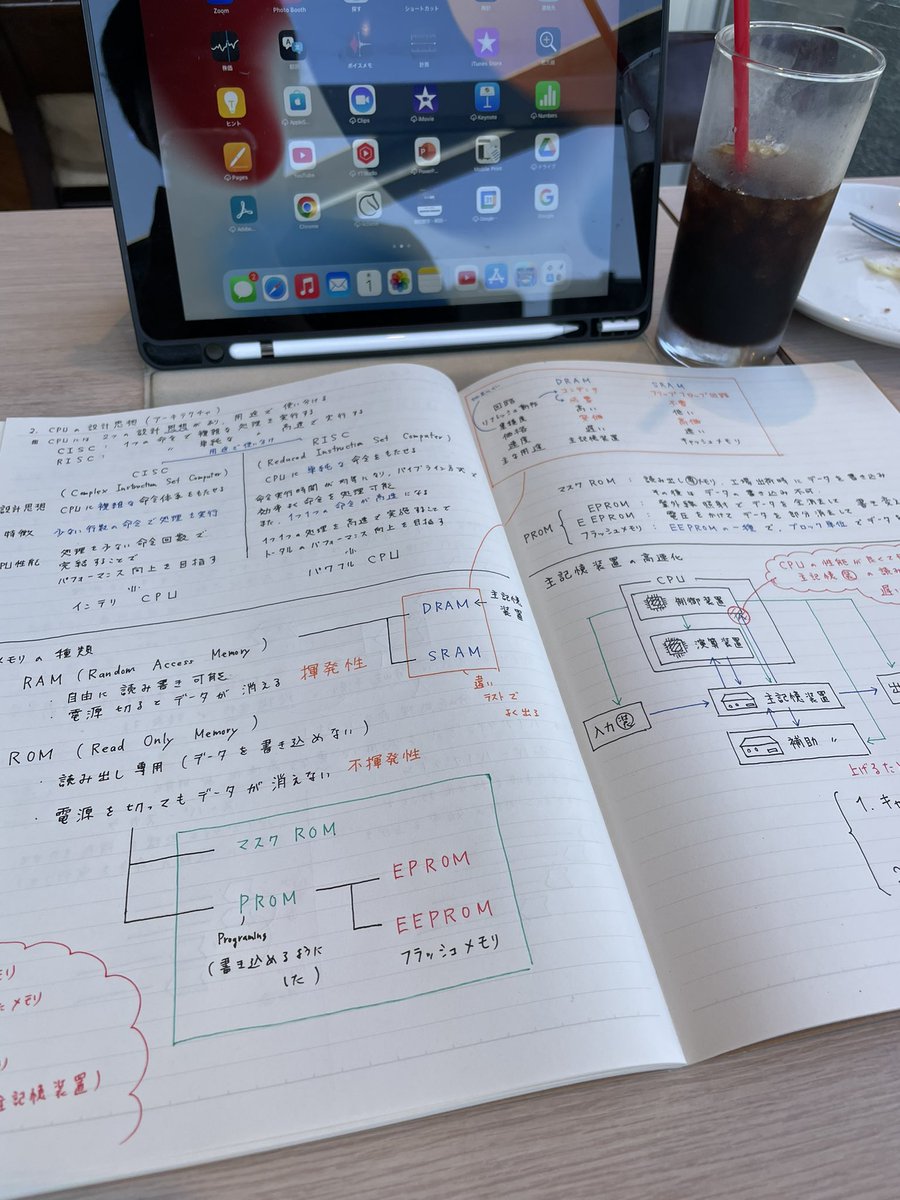 Zoom
Photo Booth
探す
ショートカット
株価
ボイスメモ
計測
iTunes Store
拡大鏡
ヒント
Clips
iMovie
Keynote
Numbers
Pages
YouTube
Mobile Print
ドライブ
Adobe...
Chrome
Google
2
1
2. CPUの設計思想(アーキテクチャ)
CPUには2つの設計思想があり、用途で使い分ける
CISC: 1つの命令で複雑な処理を実行する
RISC: 〃 単純な 〃 高速で実行する
用途で使い分け
CISC
(Complex Instruction Set Computer)
設計思想 CPUに複雑な命令体系をもたせる
特徴 少ない行数の命令で処理を実行
処理を少ない命令回数で
完結することで
パフォーマンス向上を目指す
インテリ CPU
RISC
(Reduced Instruction Set Computer)
CPUに単純な命令をもたせる
命令実行時間が均等になり、パイプライン方式で
効率よく命令を処理可能
また、1つ1つの命令が高速になる
1つ1つの処理を高速で実施することで
トータルのパフォーマンス向上を目指す
パワフル CPU
メモリの種類
RAM (Random Access Memory)
・自由に読み書き可能
・電源切るとデータが消える 揮発性
DRAM ← 主記憶装置
SRAM
違い
テストで
よく出る
ROM (Read Only Memory)
・読み出し専用 (データを書き込めない)
・電源を切ってもデータが消えない 不揮発性
マスクROM
PROM
Programing
(書き込めるように
した)
EPROM
EEPROM
フラッシュメモリ
メモリ
たメモリ
主記憶装置)
DRAM SRAM
回路 コンデンサ フリップフロップ回路
リフレッシュの動作 必要 不要
集積度 高い 低い
価格 安価 高価
速度 遅い 速い
主な用途 主記憶装置 キャッシュメモリ
マスクROM : 読み出し専用メモリ。工場出荷時にデータを書き込み
その後はデータの書き込み不可
PROM
EPROM : 紫外線照射でデータを全消去して
EEPROM : 電圧をかけてデータを部分消去して
フラッシュメモリ : EEPROMの一種で、ブロック単位でデータを
主記憶装置の高速化
CPU
制御装置
演算装置
主記憶装置
補助 〃
入力装
CPUの性能が良くても
主記憶装の読み
遅い
出
上げるた
1. キャ
2